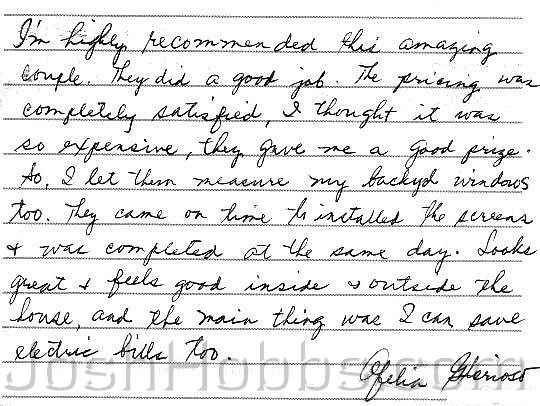 I'm highly recommended this amazing
couple. They did a good job. The pricing was
completely satisfied, I thought it was
so expensive, they gave me a good prize.
So, I let them measure my backyd windows
too. They came on time to installed the screens
& was completed at the same day. Looks
great & feels good inside & outside the
house, and the main thing was I can save
electric bills too.
Ofelia Glorioso
JoshHobbs.com